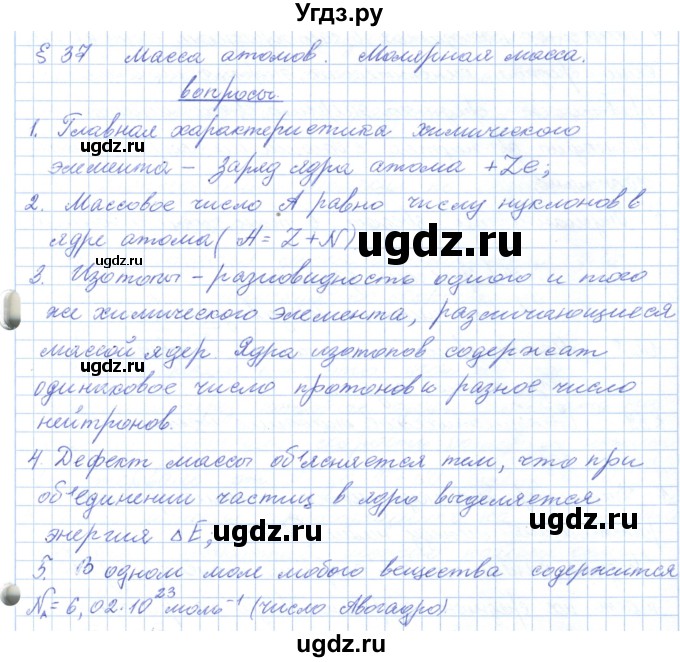 Угдз.ру
§ 37 Масса атомов. Молярная масса.
вопросы.
1. Главная характеристика химического
элемента – заряд ядра атома +Ze;
2. Массовое число A равно числу нуклонов в
ядре атома (A = Z + N)
3. Изотопы – разновидность одного и того
же химического элемента, различающиеся
массой ядер. Ядра изотопов содержат
одинаковое число протонов и разное число
нейтронов.
4 Дефект массы объясняется тем, что при
объединении частиц в ядро выделяется
энергия ΔE,
5. В одном моле любого вещества содержится
Nₐ = 6,02·10²³ моль⁻¹ (число Авогадро)
ugdz.ru
ugdz.ru
ugdz.ru
ugdz.ru
ugdz.ru
ugdz.ru
ugdz.ru
ugdz.ru
ugdz.ru
ugdz.ru